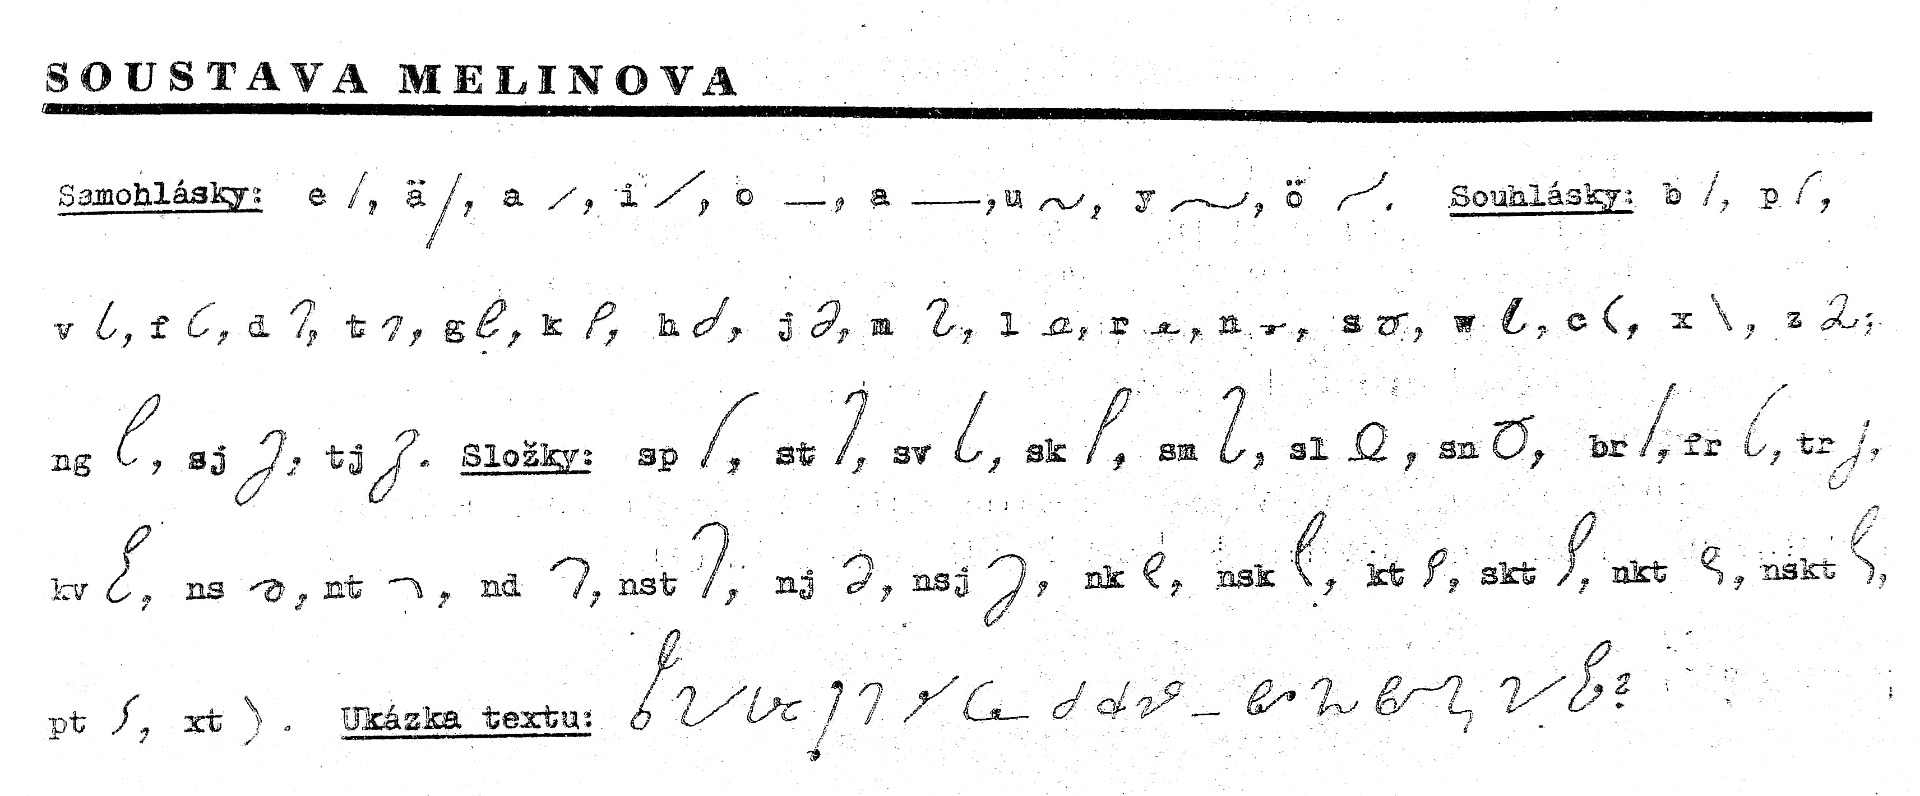 SOUSTAVA MELINOVA
Samohlásky: e , ä , a , i , o , a , u , y , ö . Souhlásky: b , p ,
v , f , d , t , g , k , h , j , m , l , r , n , s , w , c , x , z ;
ng , sj , tj . Složky: sp , st , sv , sk , sm , sl , sn , br , fr , tr ,
kv , ns , nt , nd , nst , nj , nsj , nk , nsk , kt , skt , nkt , nskt ,
pt , xt . Ukázka textu: ?